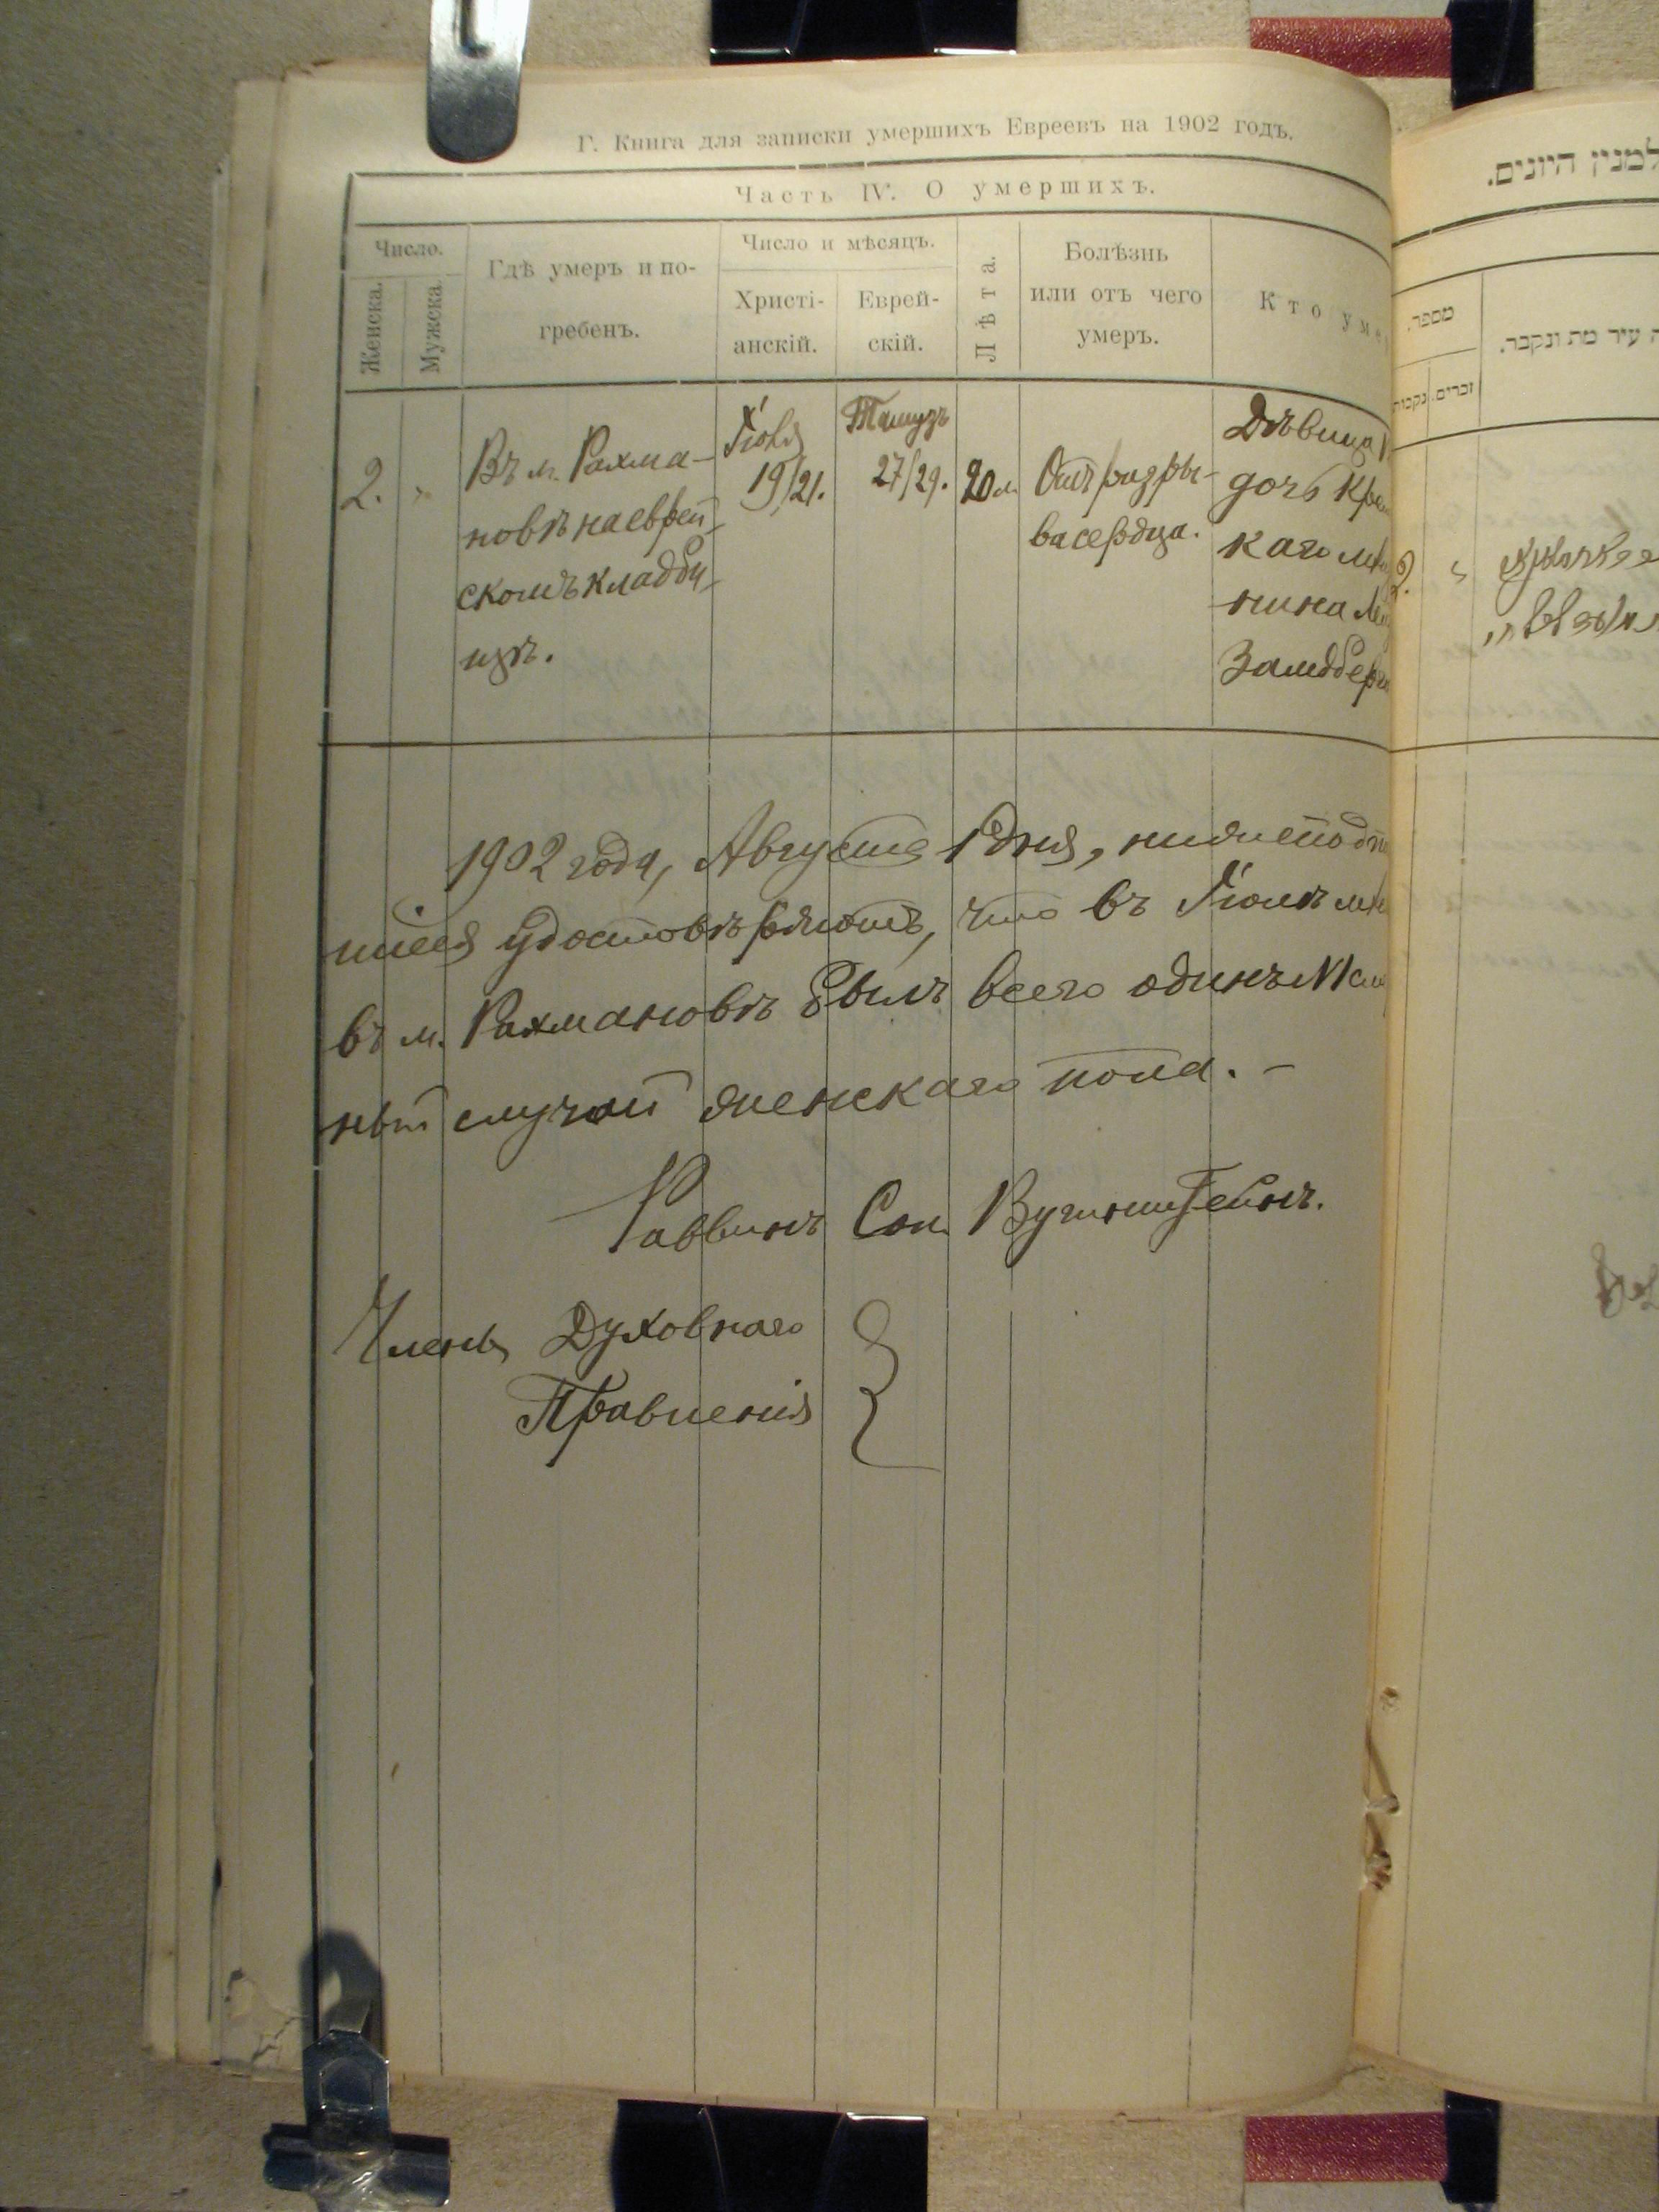 Г. Книга для записки умершихъ Евреевъ на 1902 годъ.
Часть IV. О умершихъ.
Число.
Женска.
Мужска.
Гдѣ умеръ и по-
гребенъ.
Число и мѣсяцъ.
Христі-
анскій.
Еврей-
скій.
Лѣта.
Болѣзнь
или отъ чего
умеръ.
Кто уме
2.
"
Въ м. Рахма-
новѣ на еврей-
скомъ кладби-
щѣ.
Іюля
19/21.
Тамузъ
27/29.
20 л.
Отъ разры-
ва сердца.
Дѣвица
дочь Кре
каго мѣ
нина
Замдбер
1902 года, Августа 1 дня, нижеподпи
шіеся удостовѣряютъ, что въ Іюлѣ мѣ
въ м. Рахмановѣ былъ всего одинъ
ный случай женскаго пола. –
Раввинъ Сон.
Члены Духовнаго
Правленія
למנין היונים.
מספר.
נקבות
זכרים.
ה עיר מת ונקבר.
2.
"